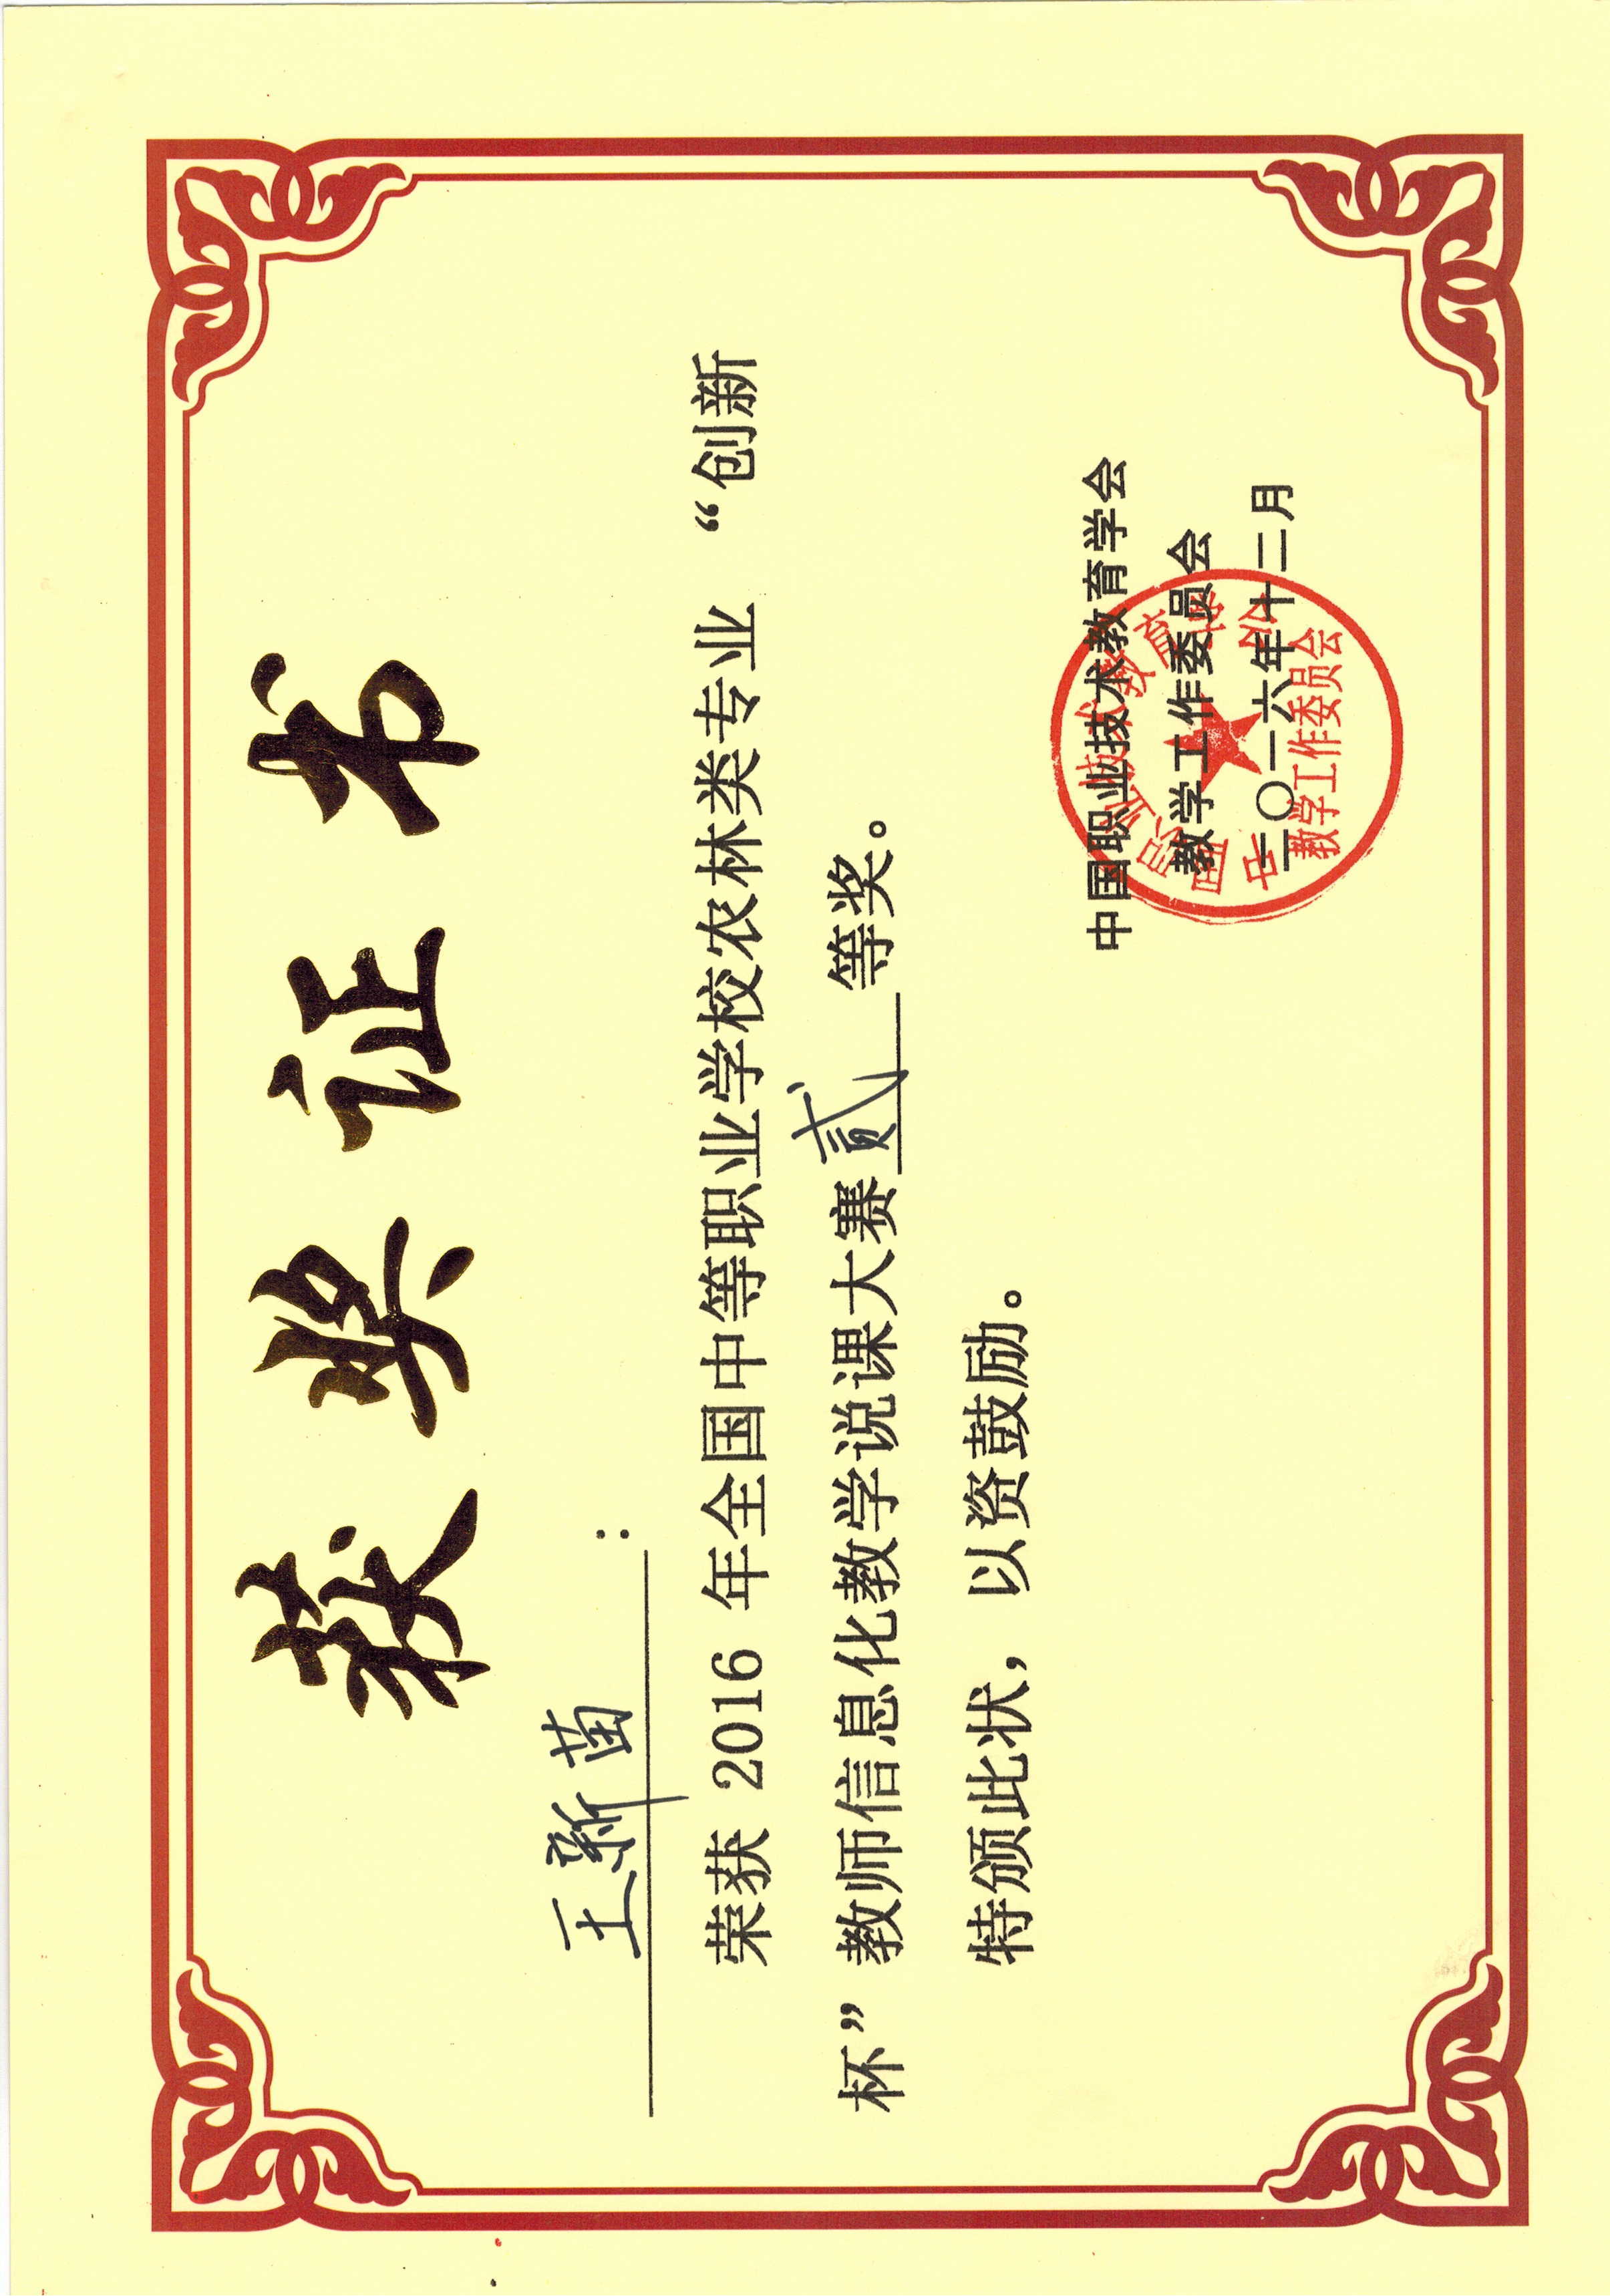 获奖证书
王新苗：
荣获 2016 年全国中等职业学校农林类专业 “创新
杯” 教师信息化教学说课大赛贰等奖。
特颁此状，以资鼓励。
中国职业技术教育学会
教学工作委员会
二〇一六年十二月
中国职业技术教育学会
教学工作委员会